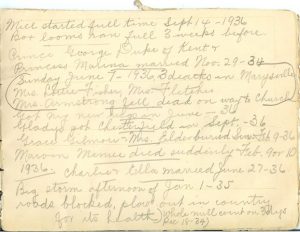 Mill started full time Sept 14-1936
Box looms ran full 3 weeks before.
Prince George Duke of Kent &
Princess Marina married Nov. 29-34
Sunday June 7-1936 3 deaths in Marysville
Mrs. Fisher, Mrs Fletcher
Mrs. Armstrong fell dead on way to Church
Got my new June - 36
Gladys got Chesterfield in Sept. - 36
Grace Gilmore - Mrs. buried Feb 9-36
Marvon died suddenly Feb. 9 or 10
1936. Charlie & Ella married June 27-36
Big storm afternoon of Jan 1-35
roads blocked, plow out in country
for its health
Whole mill went on 3 days
Dec 18-34)